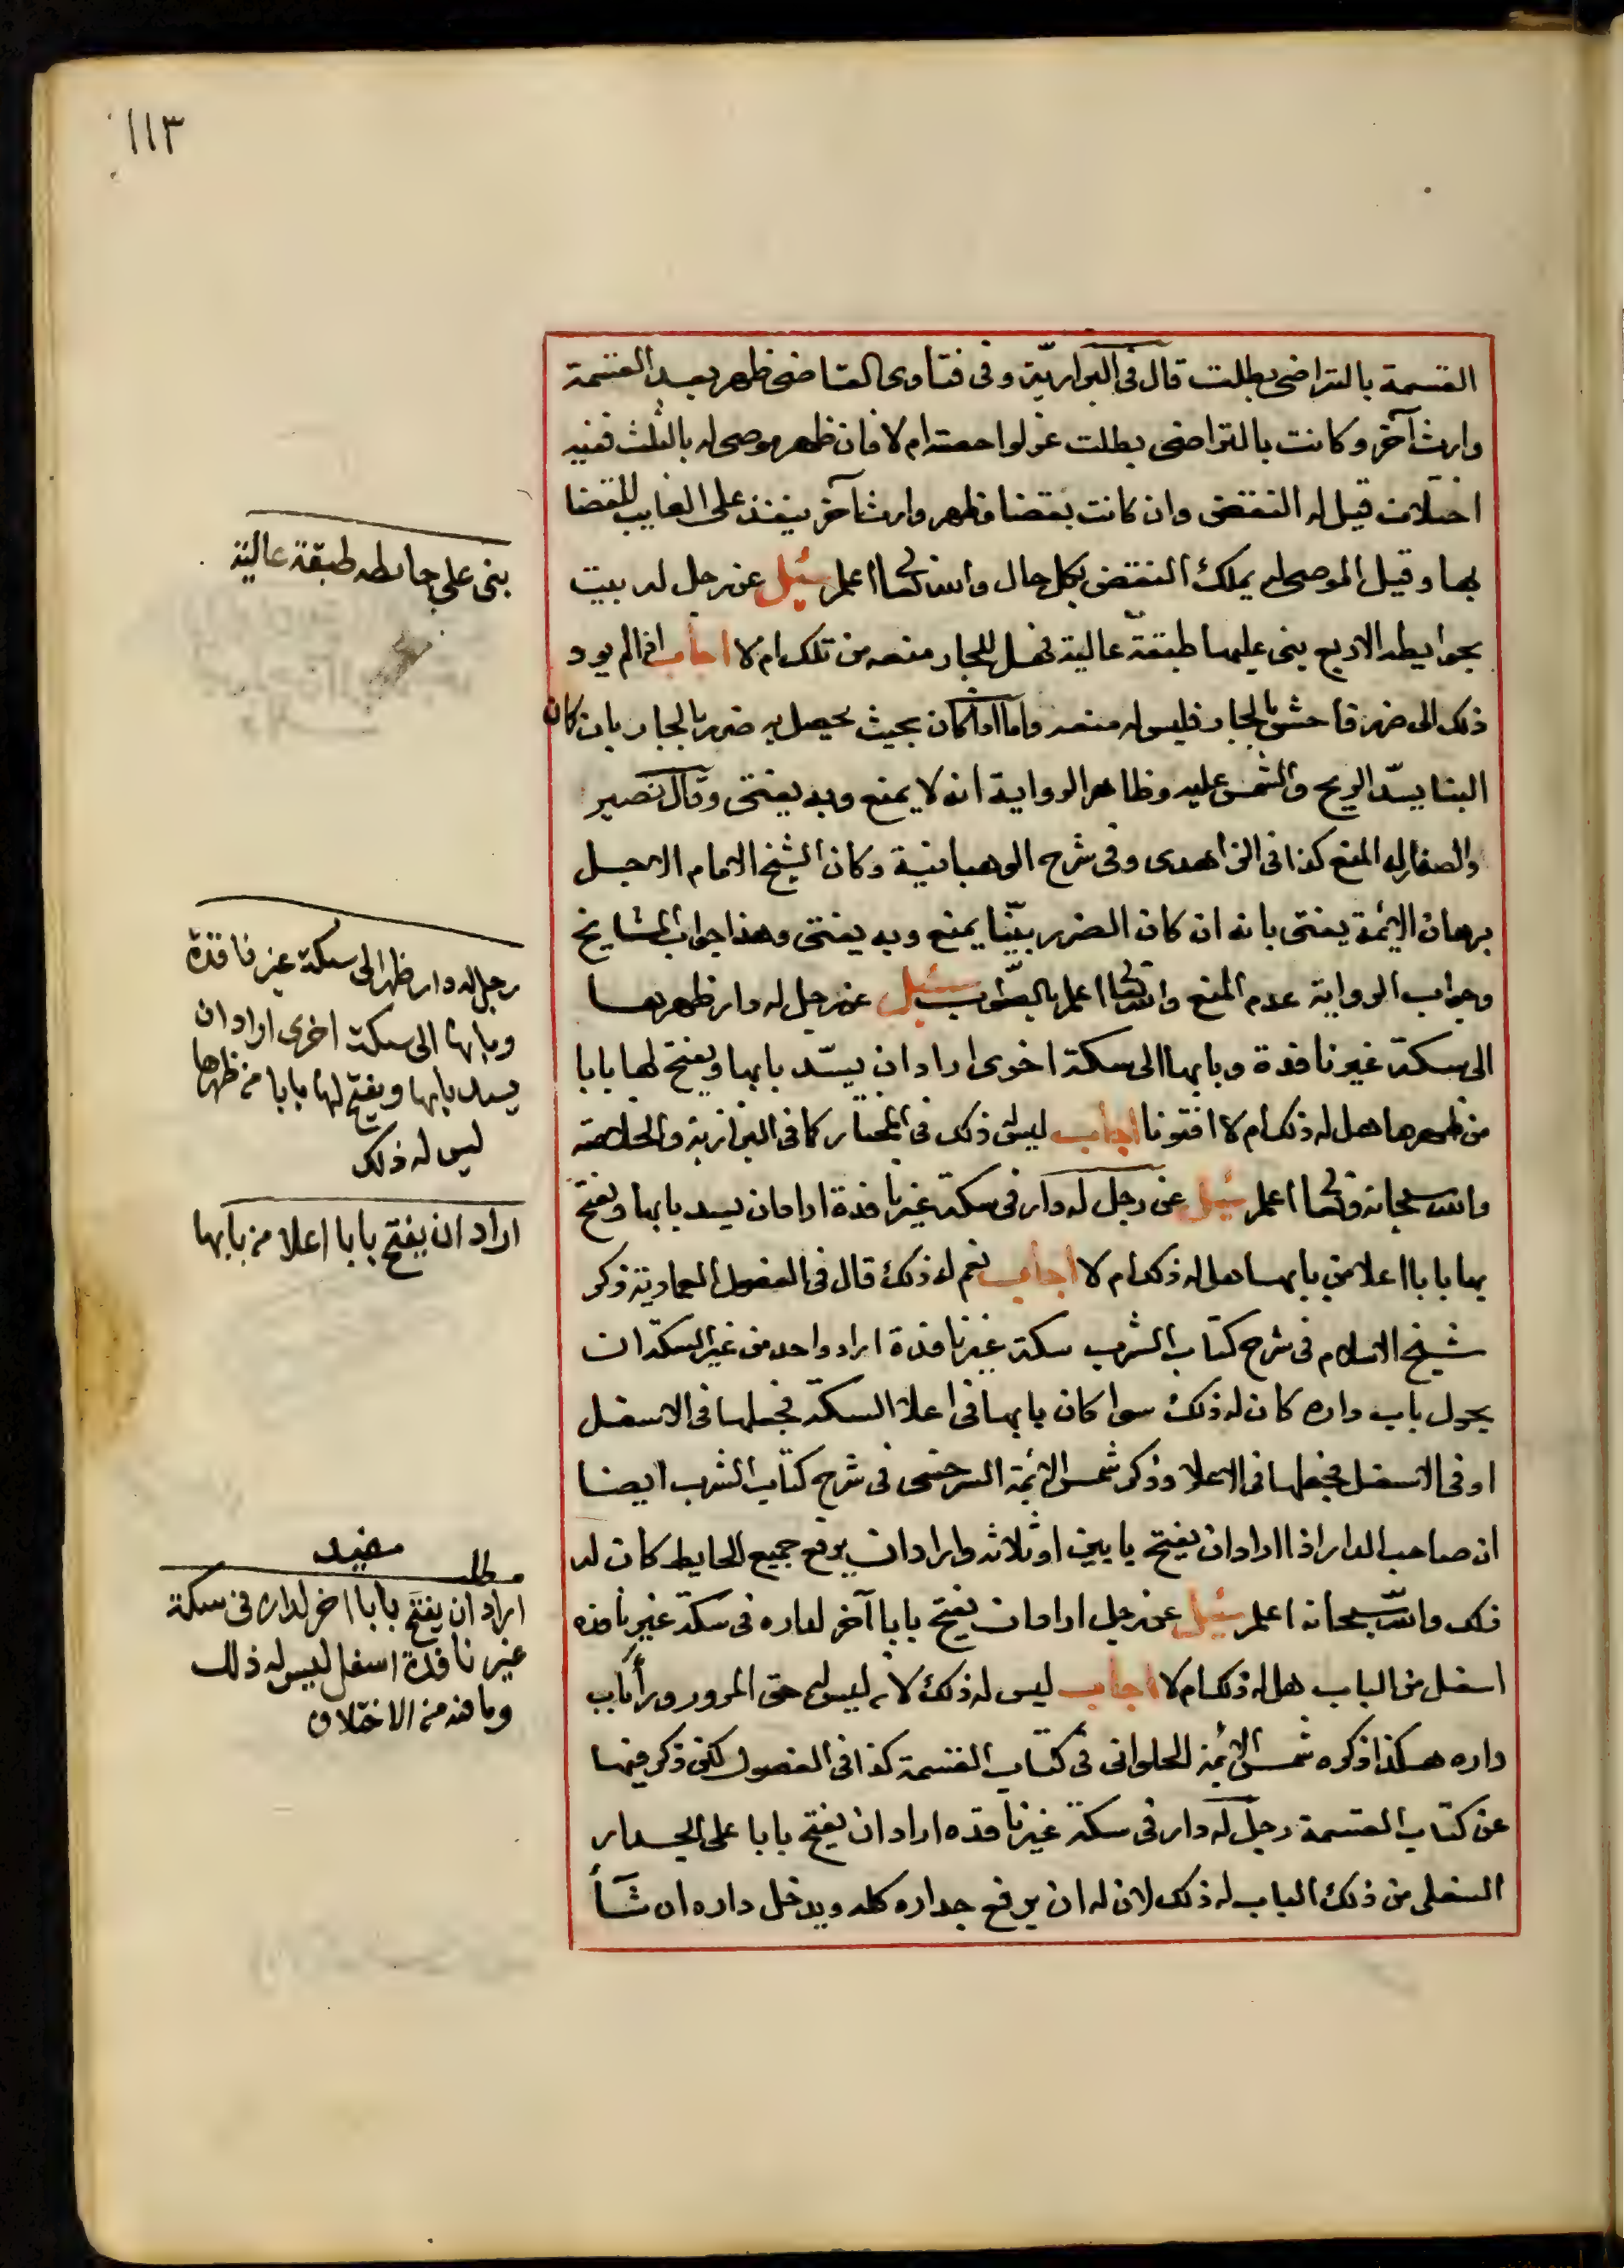 ١١٣
القسمة بالتراضى بطلت قال فى البزازية وفى فتاوى القاضى ظهر بعد القسمة
وارث آخر وكانت بالتراضى بطلت عزلوا حصته ام لا فان ظهر موصى له بالثلث ففيه
اختلاف قيل له النقض وان كانت بقضا فظهر وارث آخر ينفذ على الغايب للقضا
بها وقيل الموصى له يملك النقض بكل حال والله تعالى اعلم سئيل عن رجل له بيت
بحوايطه الاربع بنى عليها طبقة عالية فهل للجار منعه من تلك ام لا اجاب اذا لم يود
ذلك الى ضرر فاحش بالجار فليس له منعه واما اذا كان بحيث يحصل به ضرر بالجار بان كان
البنا يسدّ الريح والشمس عليه وظاهر الرواية انه لا يمنع وبه يفتى وقال نصير
والصفار له المنع كذا فى الزاهدى وفى شرح الوهبانية وكان الشيخ الامام الاجل
برهان الايمة يفتى بانه ان كان الضرر بيّنا يمنع وبه يفتى وهذا جواب المشايخ
وجواب الرواية عدم المنع والله تعالى اعلم بالصّواب سئيل عن رجل له دار ظهرها
الى سكة غير نافذة وبابها الى سكة اخرى اراد ان يسدّ بابها ويفتح لها بابا
من ظهرها هل له ذلك ام لا افتونا اجاب ليس له ذلك فى المختار كما فى البزازية والخلاصة
والله سبحانه وتعالى اعلم سئيل عن رجل له دار فى سكة غير نافذة اراد ان يسد بابها ويفتح
بها بابا اعلا من بابها هل له ذلك ام لا اجاب نعم له ذلك قال فى الفصول العمادية ذكر
شيخ الاسلام فى شرح كتاب الشرب سكة غير نافذة اراد واحد من غير السكة ان
يحول باب داره كان له ذلك سوا كان بابها فى اعلا السكة فجعلها فى الاسفل
او فى الاسفل فجعلها فى الاعلا وذكر شمس الائمة السرخسى فى شرح كتاب الشرب ايضا
ان صاحب الدار اذا اراد ان يفتح بابين او ثلاثه وارادان يرفع جميع الحايط كان له
ذلك والله سبحانه اعلم سئيل عن رجل اراد ان يفتح بابا آخر لداره فى سكة غير نافذه
اسفل من الباب هل له ذلك ام لا اجاب ليس له ذلك لانه ليس له حق المرور وراء باب
داره هكذا ذكره شمس الايمة الحلوانى فى كتاب القسمة كذا فى الفصول لكن ذكر فيها
عن كتاب القسمة رجل له دار فى سكة غير نافذه اراد ان يفتح بابا على الجدار
السفلى من ذلك الباب له ذلك لان له ان يرفع جداره كله ويدخل داره ان شآء
بنى على حايطه طبقة عالية
رجل له دار ظهرها الى سكة غير نافذة
وبابها الى سكة اخرى اراد ان
يسد بابها ويفتح لها بابا من ظهرها
ليس له ذلك
اراد ان يفتح بابا اعلا من بابها
مطلب مفيد
اراد ان يفتح بابا اخر لداره فى سكة
غير نافذة اسفل ليس له ذلك
وما فيه من الاختلاف